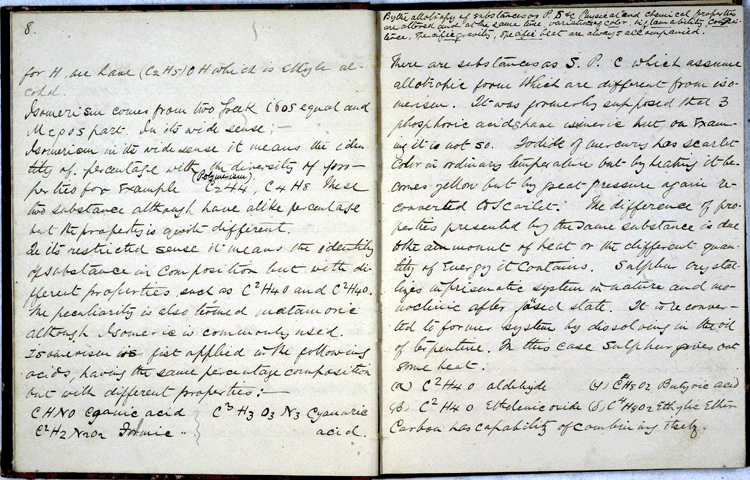 8.
for H we have (C2H5)OH which is Ethyle al-
cohol
Isomerism comes from two Greek ίσος equal and
Μερος part. In its wide sense;-
Isomerism in its wide sense it means the iden-
tity of percentage with the diversity of pro-
(Polymerism)
perties for Example C2H4, C4H8 These
two substance although have alike percentage
but the property is quite different.
In its restricted sense it means the identity
of substance in Composition but with di-
fferent properties such as C2H4O and C2H4O.
The peculiarity is also termed metameric
although Isomeric is commonly used.
Isomerism was first applied in the following
acids, having the same percentage composition
but with different properties:-
CHNO Cyanic acid } C3H3O3N3 Cyanuric
C2H2N2O2 " } acid.
By the allotropy of substances as P. S &c Physical and chemical properties
are altered and at the same time variations of color, instability,
Specific gravity, Specific heat are always accompanied.
There are substances as S. P. C which assume
allotropic form which are different from iso-
merism. It was formerly supposed that 3
phosphoric acids have isomeric but on Exam-
ing it is not so. Iodide of mercury has scarlet
Color in ordinary temperature but by heating it be-
comes yellow but by great pressure again re-
converted to Scarlet. The difference of pro-
perties presented by the same substance is due
to the ammount of heat or the different quan-
tity of Energy it Contains. Sulphur crystal-
lizes in prismatic system in nature and mo-
noclinic after fused state. It is reconver-
ted to former system by dissolving in the oil
of terpentine. In this case Sulphur gives out
some heat.
(α) C2H4O aldehyde (γ) C4H8O2 Butyric acid
(β) C2H4O Ethylenic oxide (δ) C4H8O2 Ethylic Ether
Carbon has capability of combining itself.